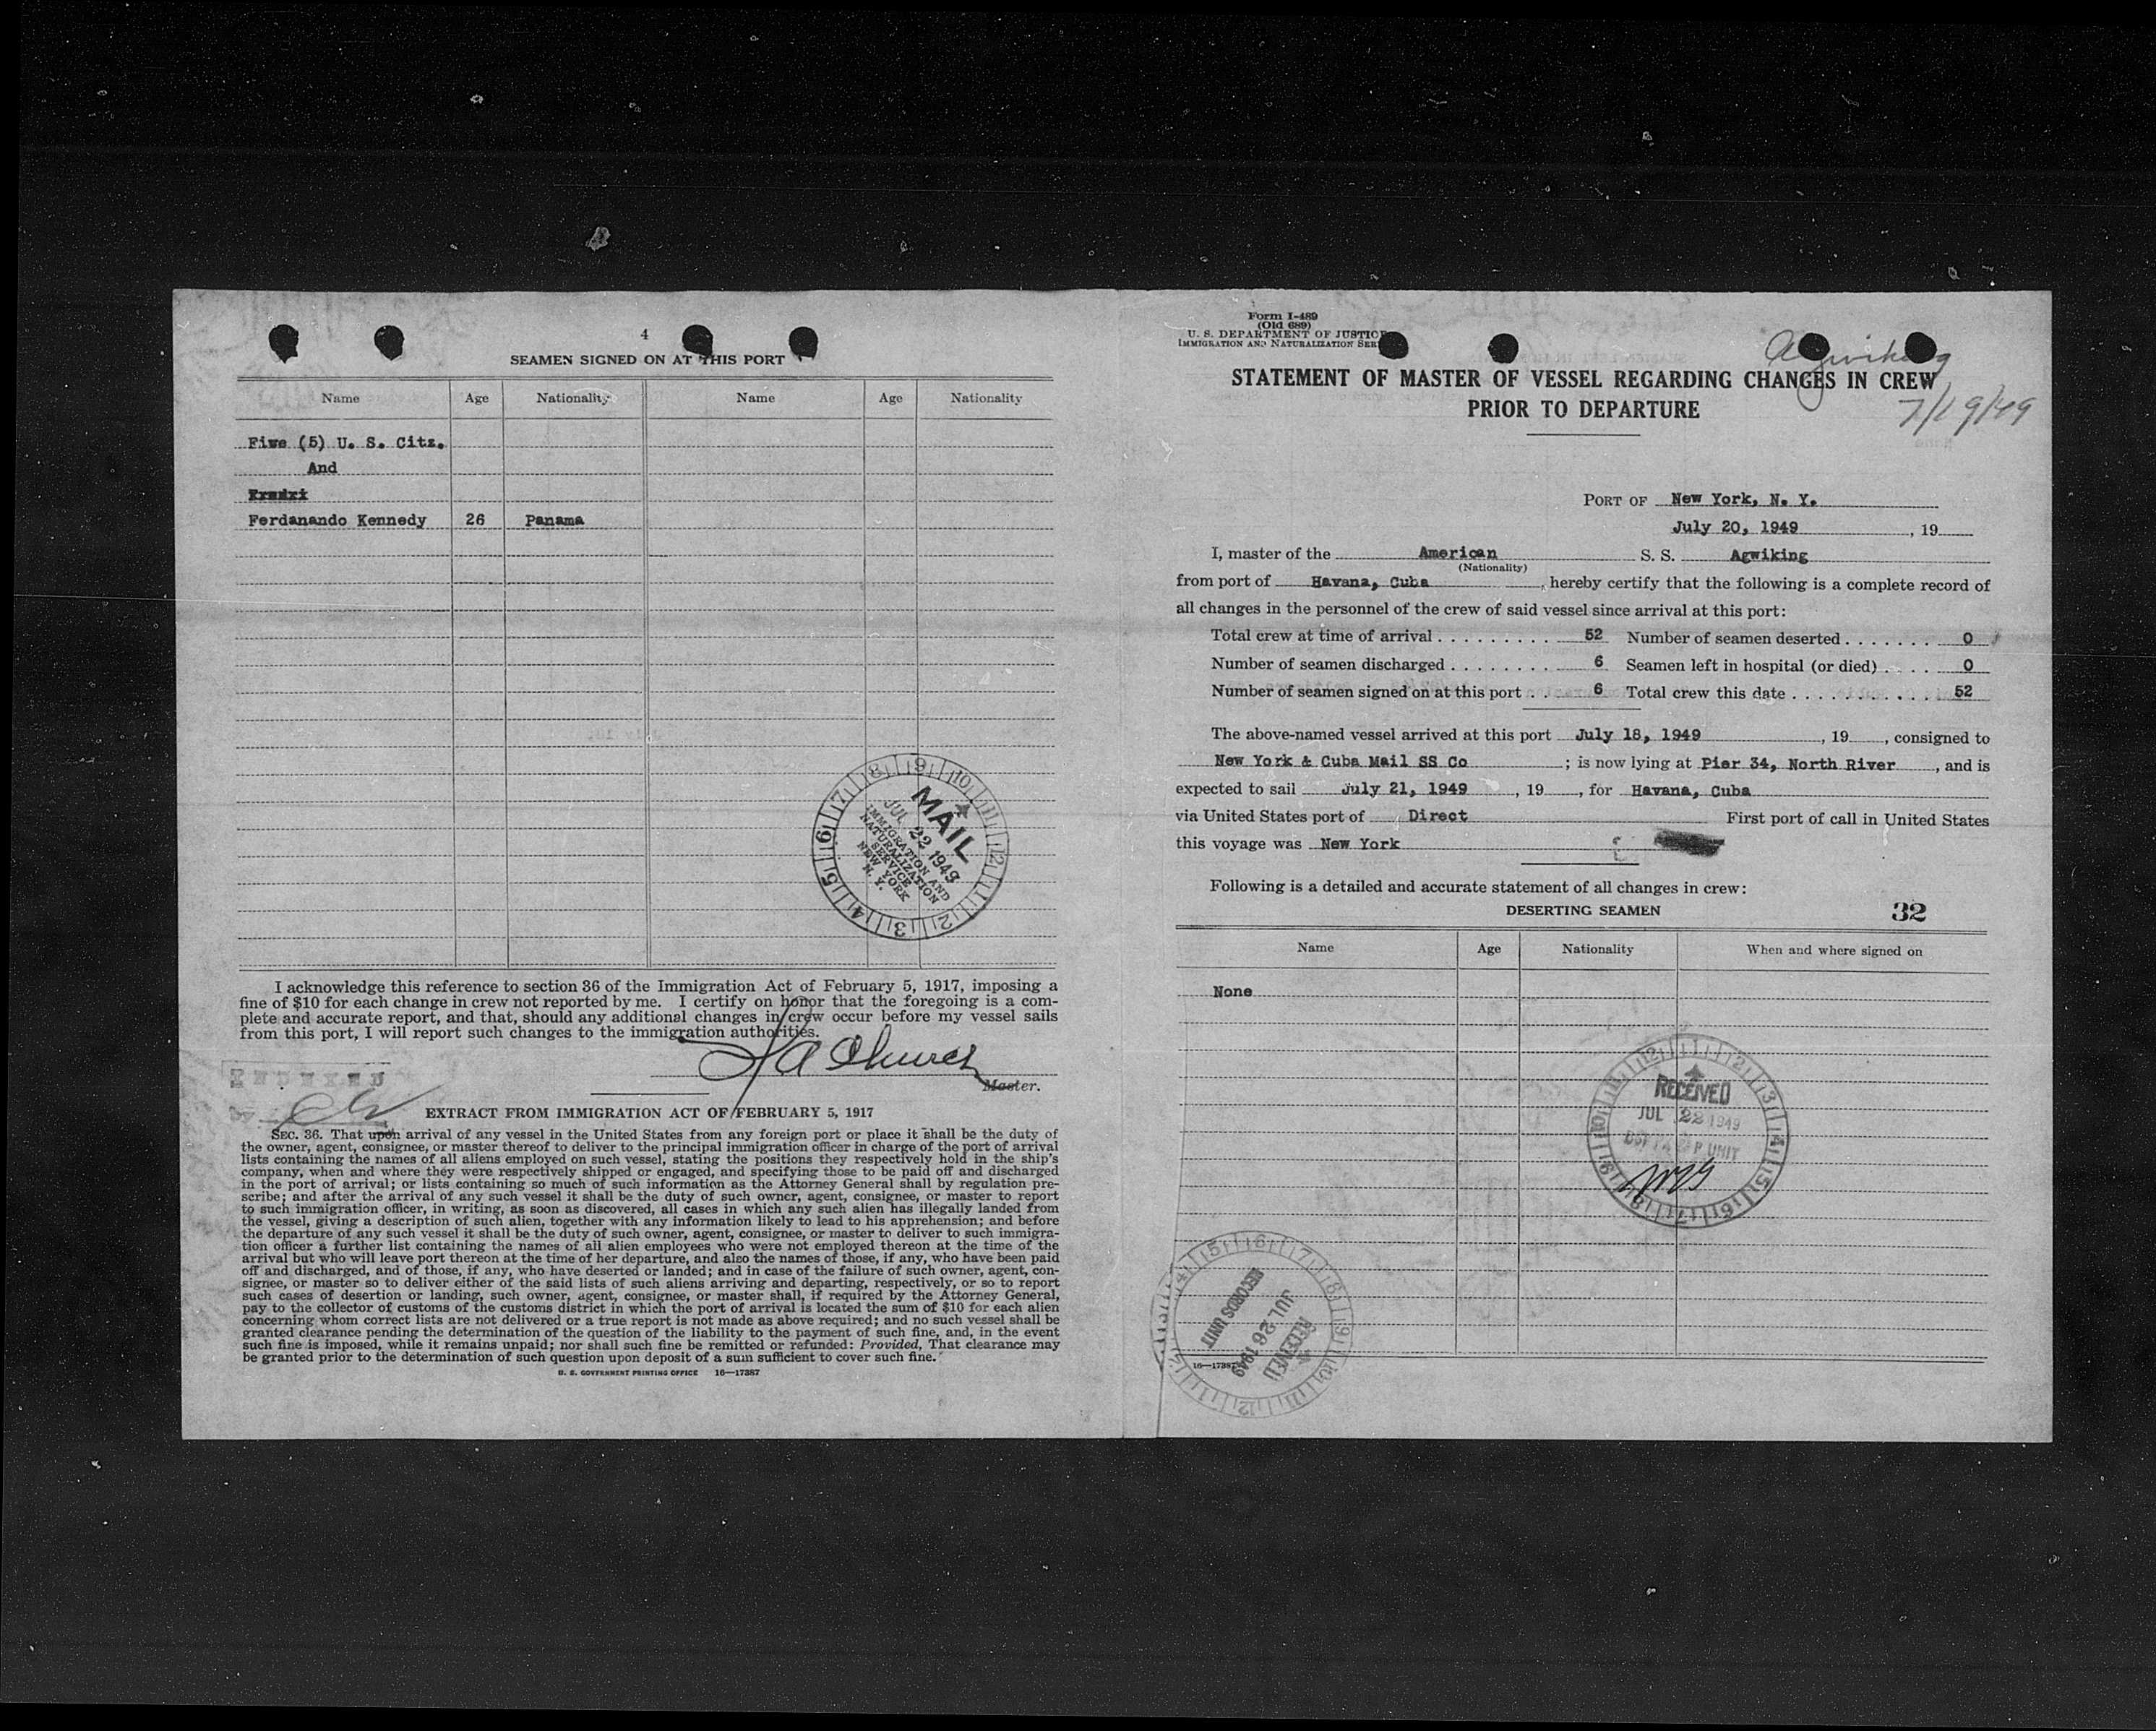 4
SEAMEN SIGNED ON AT THIS PORT
Name Age Nationality Name Age Nationality
Five (5) U. S. Citz.
And
Ferdanando Kennedy 26 Panama
MAIL
JUL 22 1949
IMMIGRATION AND
NATURALIZATION
SERVICE
NEW YORK
N. Y.
I acknowledge this reference to section 36 of the Immigration Act of February 5, 1917, imposing a
fine of $10 for each change in crew not reported by me. I certify on honor that the foregoing is a com-
plete and accurate report, and that, should any additional changes in crew occur before my vessel sails
from this port, I will report such changes to the immigration authorities.
Master.
EXTRACT FROM IMMIGRATION ACT OF FEBRUARY 5, 1917
SEC. 36. That upon arrival of any vessel in the United States from any foreign port or place it shall be the duty of
the owner, agent, consignee, or master thereof to deliver to the principal immigration officer in charge of the port of arrival
lists containing the names of all aliens employed on such vessel, stating the positions they respectively hold in the ship's
company, when and where they were respectively shipped or engaged, and specifying those to be paid off and discharged
in the port of arrival; or lists containing so much of such information as the Attorney General shall by regulation pre-
scribe; and after the arrival of any such vessel it shall be the duty of such owner, agent, consignee, or master to report
to such immigration officer, in writing, as soon as discovered, all cases in which any such alien has illegally landed from
the vessel, giving a description of such alien, together with any information likely to lead to his apprehension; and before
the departure of any such vessel it shall be the duty of such owner, agent, consignee, or master to deliver to such immigra-
tion officer a further list containing the names of all alien employees who were not employed thereon at the time of the
arrival but who will leave port thereon at the time of her departure, and also the names of those, if any, who have been paid
off and discharged, and of those, if any, who have deserted or landed; and in case of the failure of such owner, agent, con-
signee, or master so to deliver either of the said lists of such aliens arriving and departing, respectively, or so to report
such cases of desertion or landing, such owner, agent, consignee, or master shall, if required by the Attorney General,
pay to the collector of customs of the customs district in which the port of arrival is located the sum of $10 for each alien
concerning whom correct lists are not delivered or a true report is not made as above required; and no such vessel shall be
granted clearance pending the determination of the question of the liability to the payment of such fine, and, in the event
such fine is imposed, while it remains unpaid; nor shall such fine be remitted or refunded: Provided, That clearance may
be granted prior to the determination of such question upon deposit of a sum sufficient to cover such fine.
U. S. GOVERNMENT PRINTING OFFICE 16—17387
Form I-489
(Old 689)
U. S. DEPARTMENT OF JUSTICE
IMMIGRATION AND NATURALIZATION SER
Agwiking
7/19/49
STATEMENT OF MASTER OF VESSEL REGARDING CHANGES IN CREW
PRIOR TO DEPARTURE
PORT OF New York, N. Y.
July 20, 1949, 19
I, master of the American S. S. Agwiking
(Nationality)
from port of Havana, Cuba, hereby certify that the following is a complete record of
all changes in the personnel of the crew of said vessel since arrival at this port:
Total crew at time of arrival 52 Number of seamen deserted 0
Number of seamen discharged 6 Seamen left in hospital (or died) 0
Number of seamen signed on at this port 6 Total crew this date 52
The above-named vessel arrived at this port July 18, 1949, 19, consigned to
New York & Cuba Mail SS Co; is now lying at Pier 34, North River, and is
expected to sail July 21, 1949, 19, for Havana, Cuba
via United States port of Direct First port of call in United States
this voyage was New York
Following is a detailed and accurate statement of all changes in crew:
DESERTING SEAMEN 32
Name Age Nationality When and where signed on
None
RECEIVED
JUL 22 1949
UNIT
RECEIVED
JUL 26 1949
RECORDS UNIT
16—17387